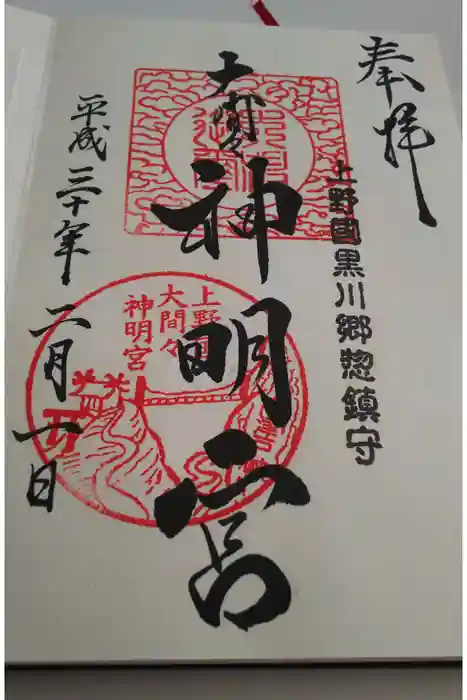 奉拝
上野國黒川郷惣鎮守
大間々
神明宮
上野国
大間々
神明宮
平成三十年二月一日